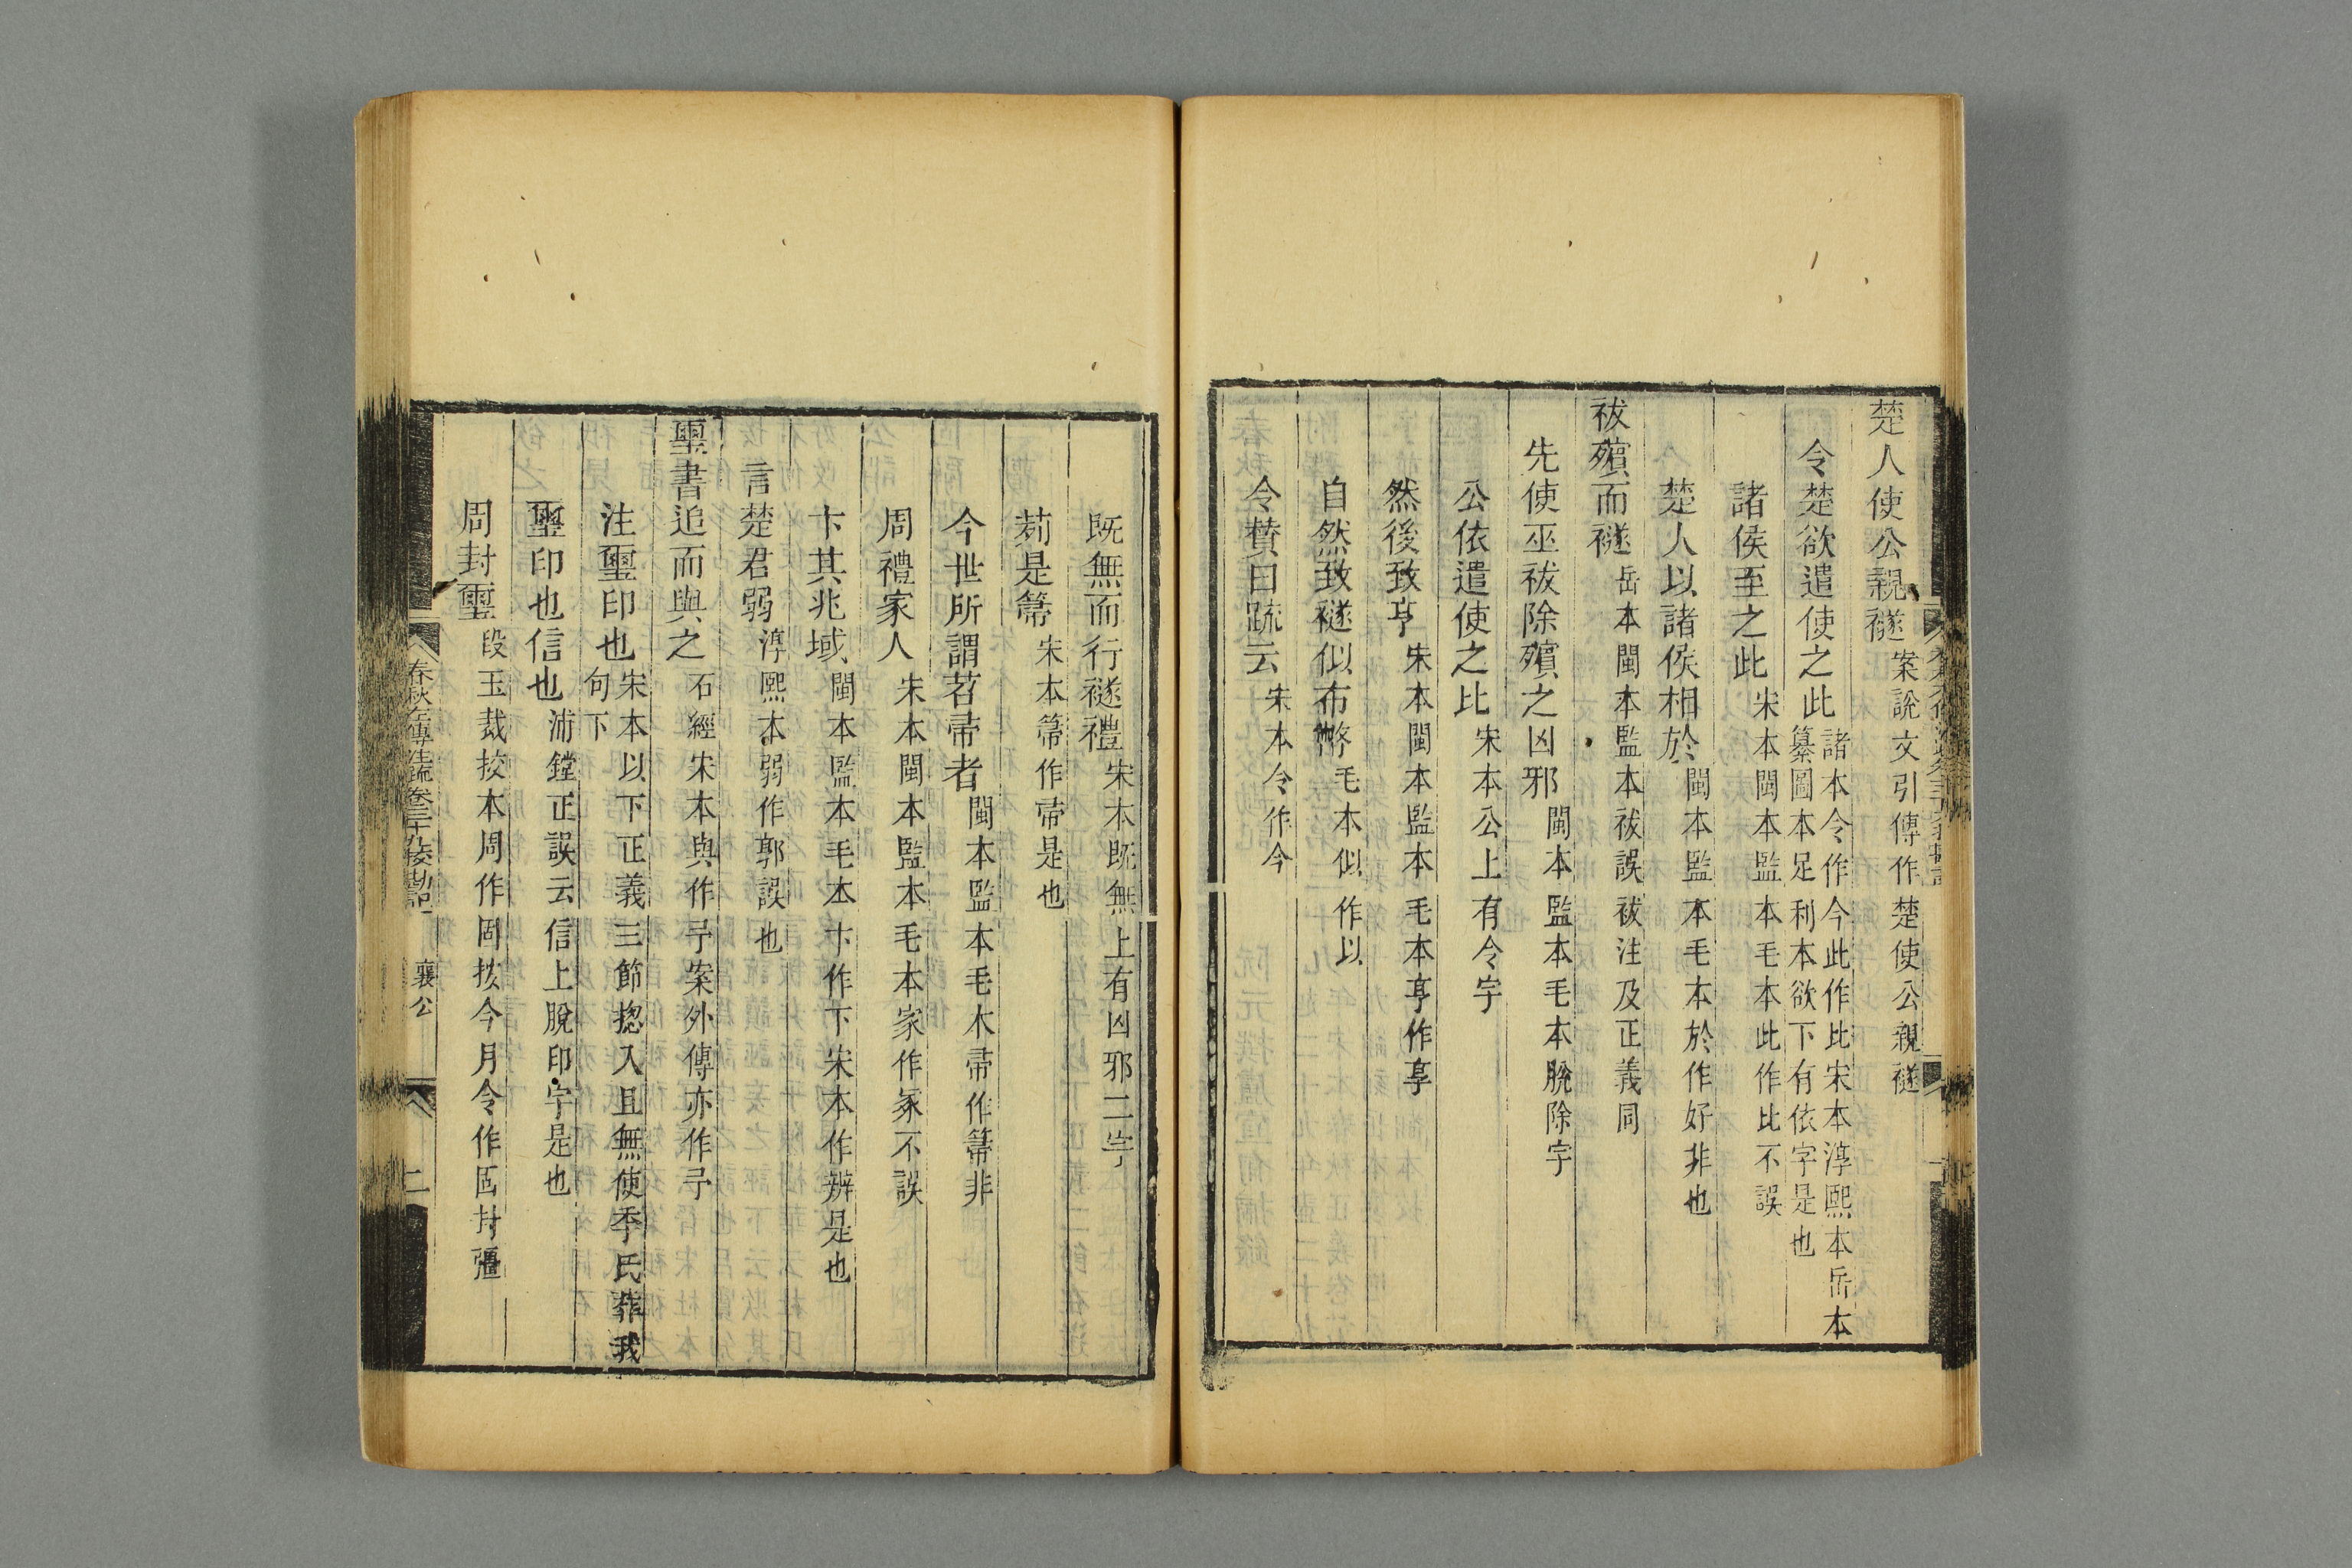 楚人使公親襚案說文引傳作楚使公親襚
令楚欲遣使之此諸本令作今此作比宋本淳熙本岳本
纂圖本足利本欲下有依字是也
諸侯至之此宋本閩本監本毛本此作比不誤
楚人以諸侯相於閩本監本毛本於作好非也
祓殯而襚岳本閩本監本祓誤祓注及正義同
先使巫祓除殯之凶邪閩本監本毛本脫除字
公依遣使之比宋本公上有令字
然後致亨宋本閩本監本毛本亨作享
自然致襚似布幣毛本似作以
令贊曰疏云宋本令作今
既無而行襚禮宋本既無上有凶邪二字
茢是箒宋本箒作帚是也
今世所謂苕帚者閩本監本毛本帚作箒非
周禮家人宋本閩本監本毛本家作冢不誤
卞其兆域閩本監本毛本卞作下宋本作辨是也
言楚君弱淳熙本弱作郭誤也
璽書追而與之石經宋本與作予案外傳亦作予
注璽印也宋本以下正義三節揔入且無使季氏葬我
句下
璽印也信也浦鏜正誤云信上脫印字是也
周封璽段玉裁挍本周作固按今月令作固封疆
春秋左傳注疏卷三十九挍勘記
襄公
二